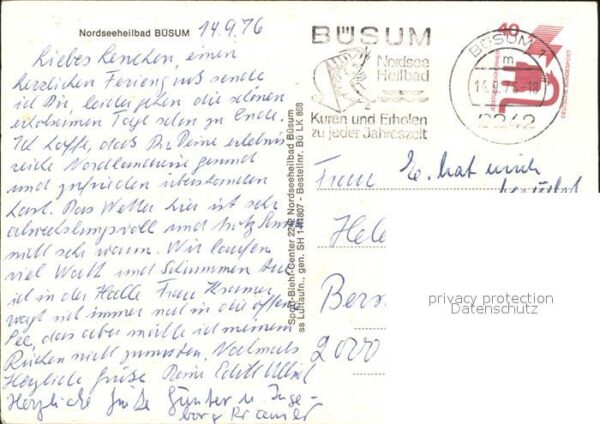 Nordseeheilbad BÜSUM 14.9.76
Liebes Lenchen, einen
herzlichen Feriengruß sende
ich Dir, leider gehen die schönen
erholsamen Tage schon zu Ende.
Ich hoffe, dass Du Deine erlebnis
reiche Nordlandreise gesund
und zufrieden überstanden
hast. Das Wetter hier ist sehr
abwechslungsvoll und trotz Sonne
nicht sehr warm. Wir laufen
viel Watt und Schwimmen tue
ich in der Halle Frau Kramer
wagt sich immer noch in die offene
See, das aber möchte ich meinem
Rücken nicht zumuten. Nochmals
Herzliche Grüße Deine Edith
Herzliche Grüße Günter u Inge-
borg Kramer
Sport-Biehl-Center 2242 Nordseeheilbad Büsum
ss Luftaufn., gen. SH 1-41807 - Bestellnr. Bü LK 808
BÜSUM
Nordsee
Heilbad
Kuren und Erholen
zu jeder Jahreszeit
BÜSUM 1
m
14.9.76-18
2242
40
DEUTSCHE BUNDESPOST
E. hat mich
Frau
Hele
Bers
2000
privacy protection
Datenschutz